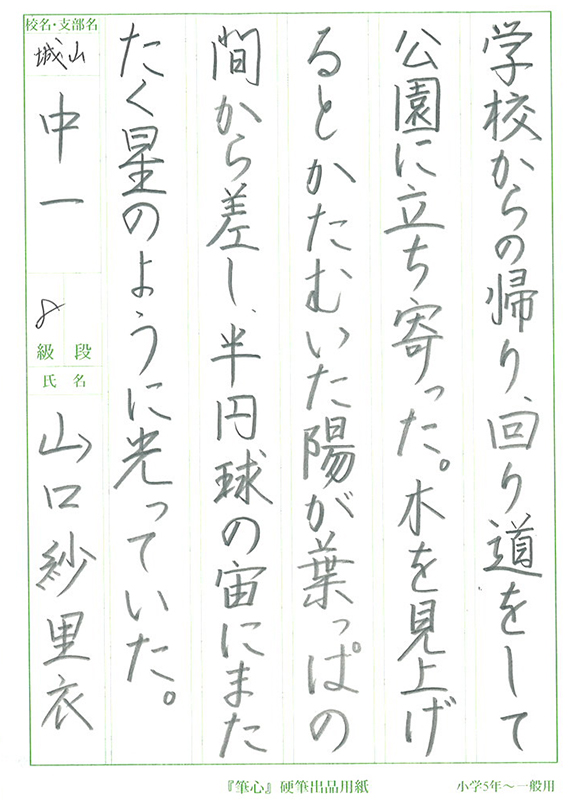 学校からの帰り、回り道をして
公園に立ち寄った。木を見上げ
るとかたむいた陽が葉っぱの
間から差し、半円球の宙にまた
たく星のように光っていた。
校名・支部名
城山
中一
8
級 段
氏 名
山口紗里衣
『筆心』硬筆出品用紙
小学5年～一般用